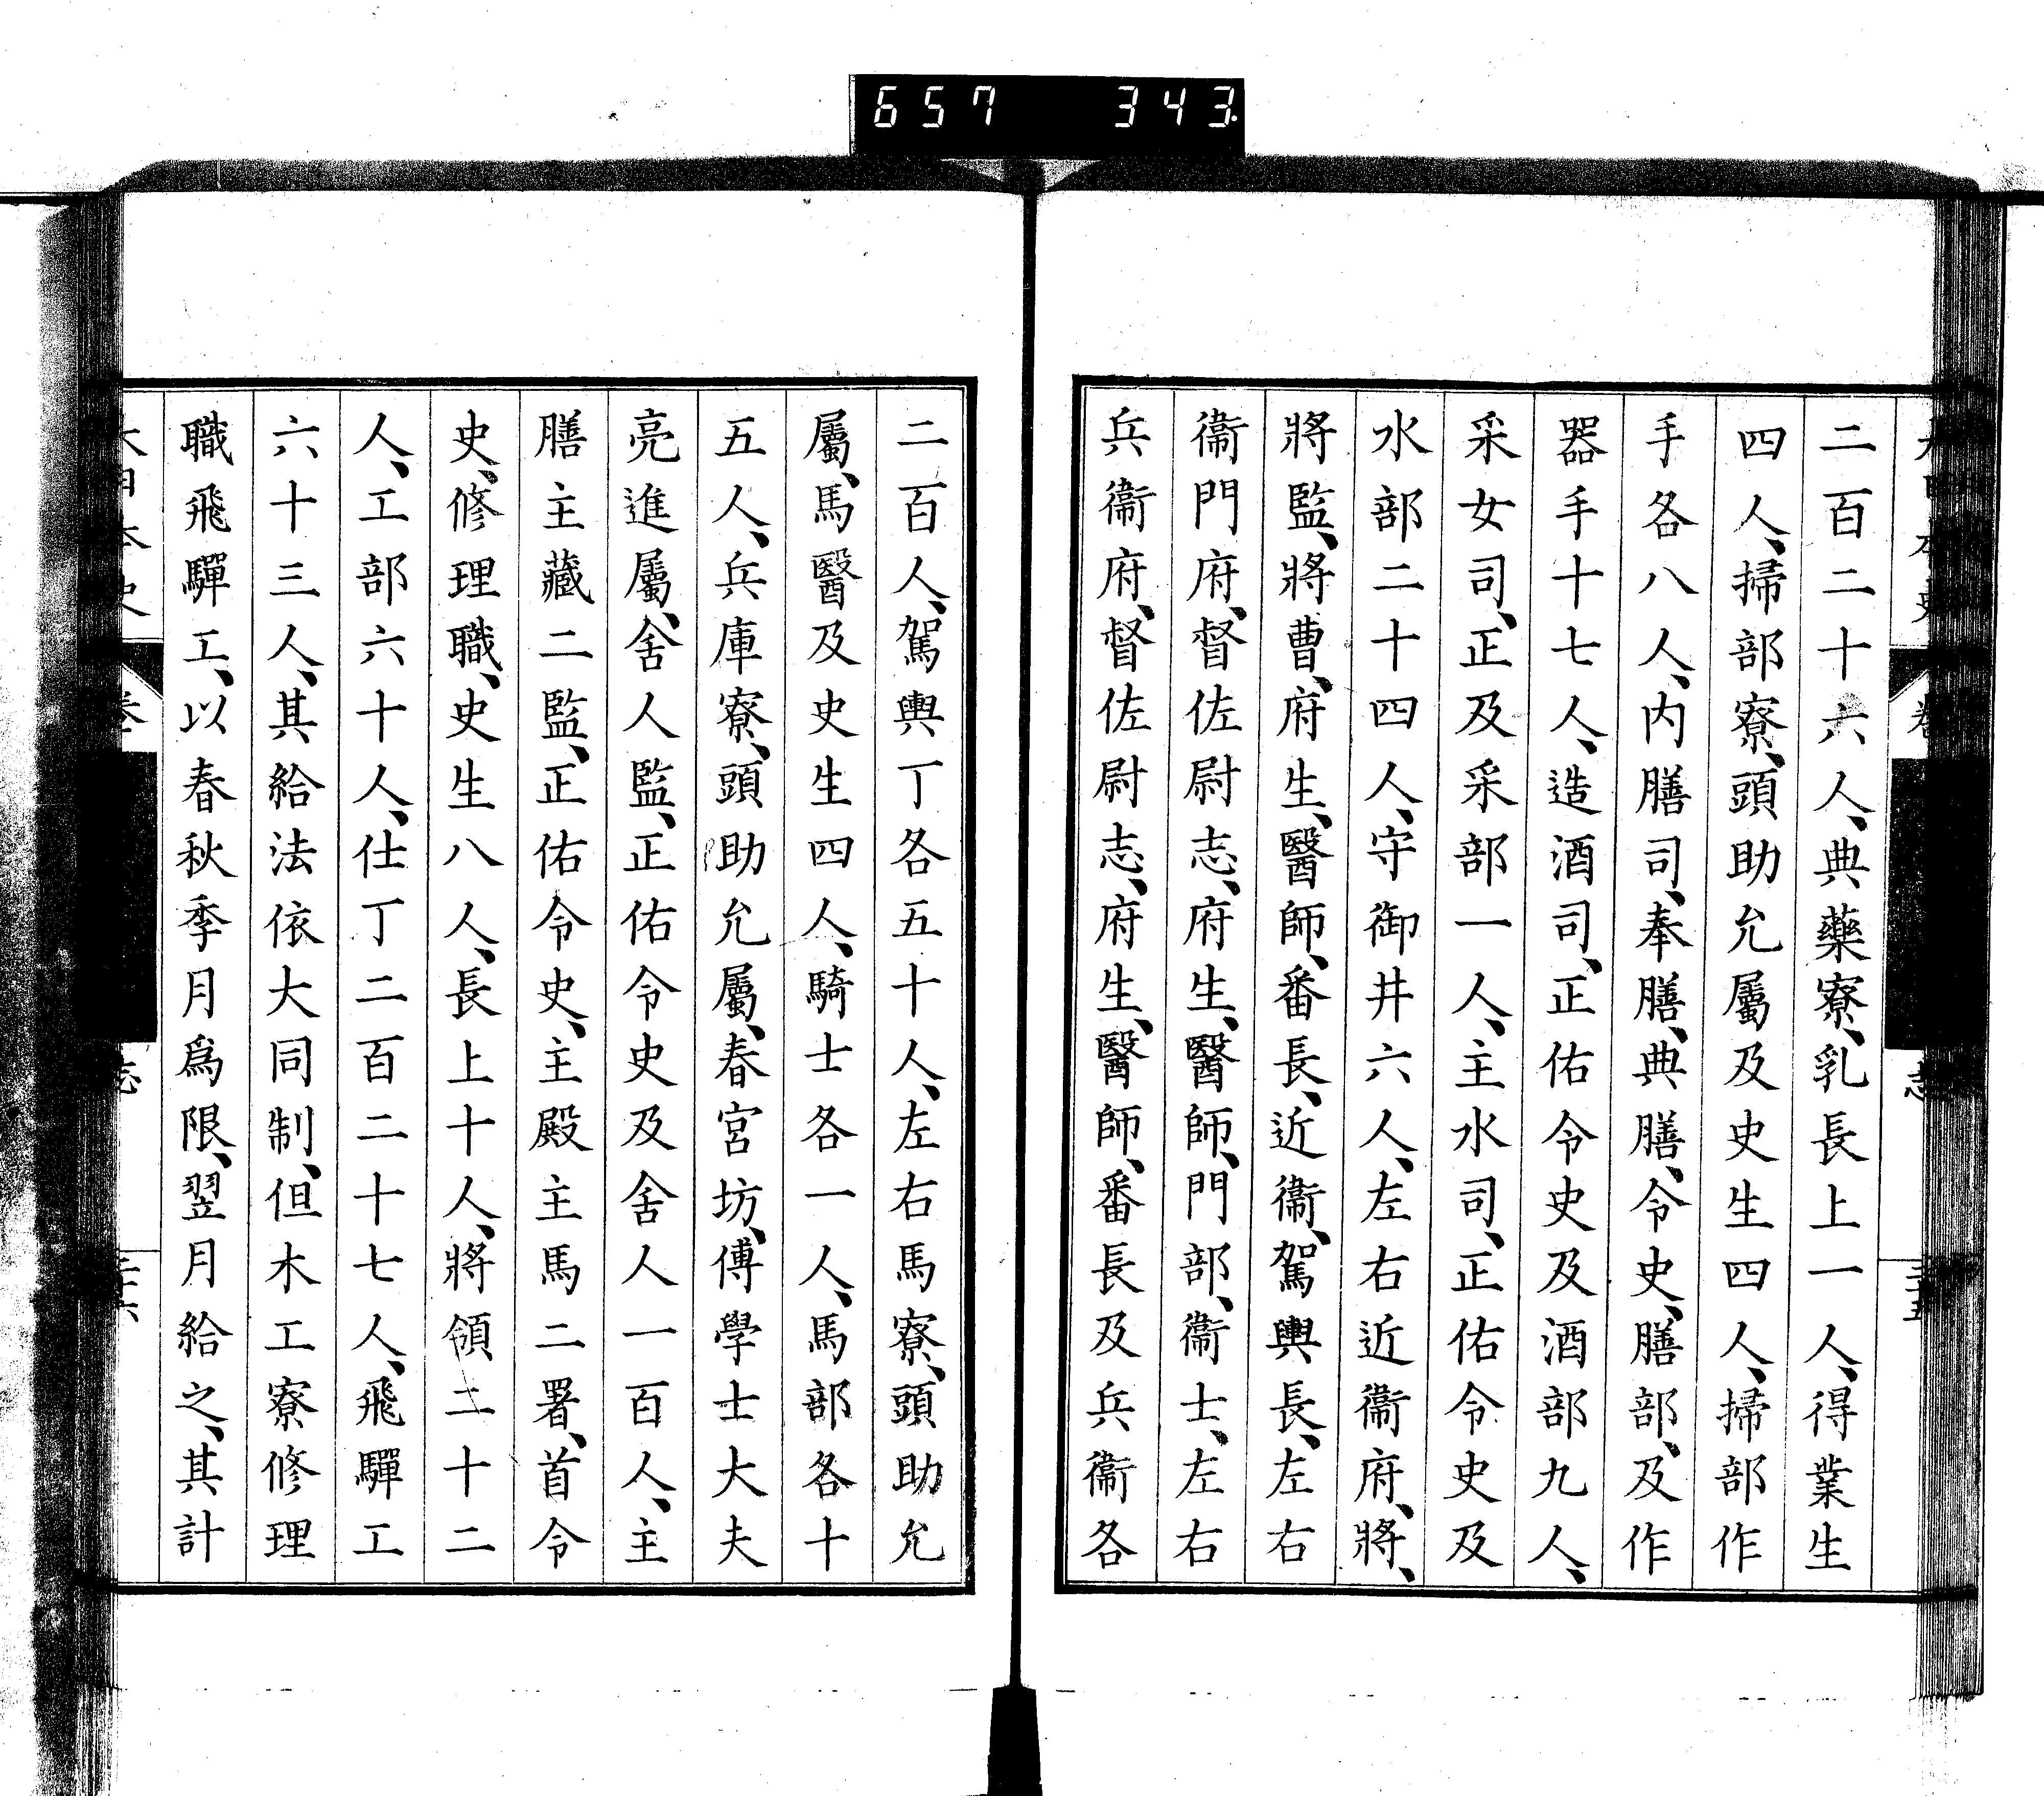 657 343
二百二十六人、典藥寮、乳長上一人、得業生
四人、掃部寮、頭助允屬及史生四人、掃部作
手各八人、内膳司、奉膳、典膳、令史、膳部、及作
器手十七人、造酒司、正佑令史及酒部九人、
采女司、正及采部一人、主水司、正佑令史及
水部二十四人、守御井六人、左右近衞府、將、
將監、將曹、府生、醫師、番長、近衞、駕輿長、左右
衞門府、督佐尉志、府生、醫師、門部、衞士、左右
兵衞府、督佐尉志、府生、醫師、番長及兵衞各
二百人、駕輿丁各五十人、左右馬寮、頭助允
屬、馬醫及史生四人、騎士各一人、馬部各十
五人、兵庫寮、頭助允屬、春宮坊、傅學士大夫
亮進屬、舍人監、正佑令史及舍人一百人、主
膳主藏二監、正佑令史、主殿主馬二署、首令
史、修理職、史生八人、長上十人、將領二十二
人、工部六十人、仕丁二百二十七人、飛驒工
六十三人、其給法依大同制、但木工寮修理
職飛驒工、以春秋季月爲限、翌月給之、其計